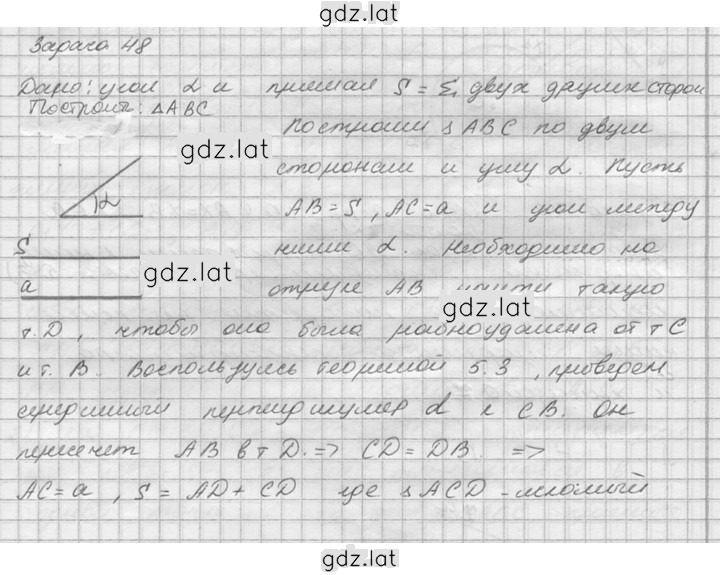 gdz.lat
Задача 48
Дано: угол α и прямая S = Σ двух других сторон
Построить: △ABC
Построим △ABC по двум
gdz.lat
сторонам и углу α. Пусть
α
AB=S, AC=a и угол между
S
ними α. Необходимо на
gdz.lat
a
отрезке AB найти такую
gdz.lat
т.D, чтобы она была равноудалена от т C
и т. B. Воспользуясь теоремой 5.3, проведем
серединный перпендикуляр α к CB. Он
пересечет AB в т D. => CD=DB. =>
AC=a, S = AD+CD где △ACD - искомый
gdz.lat